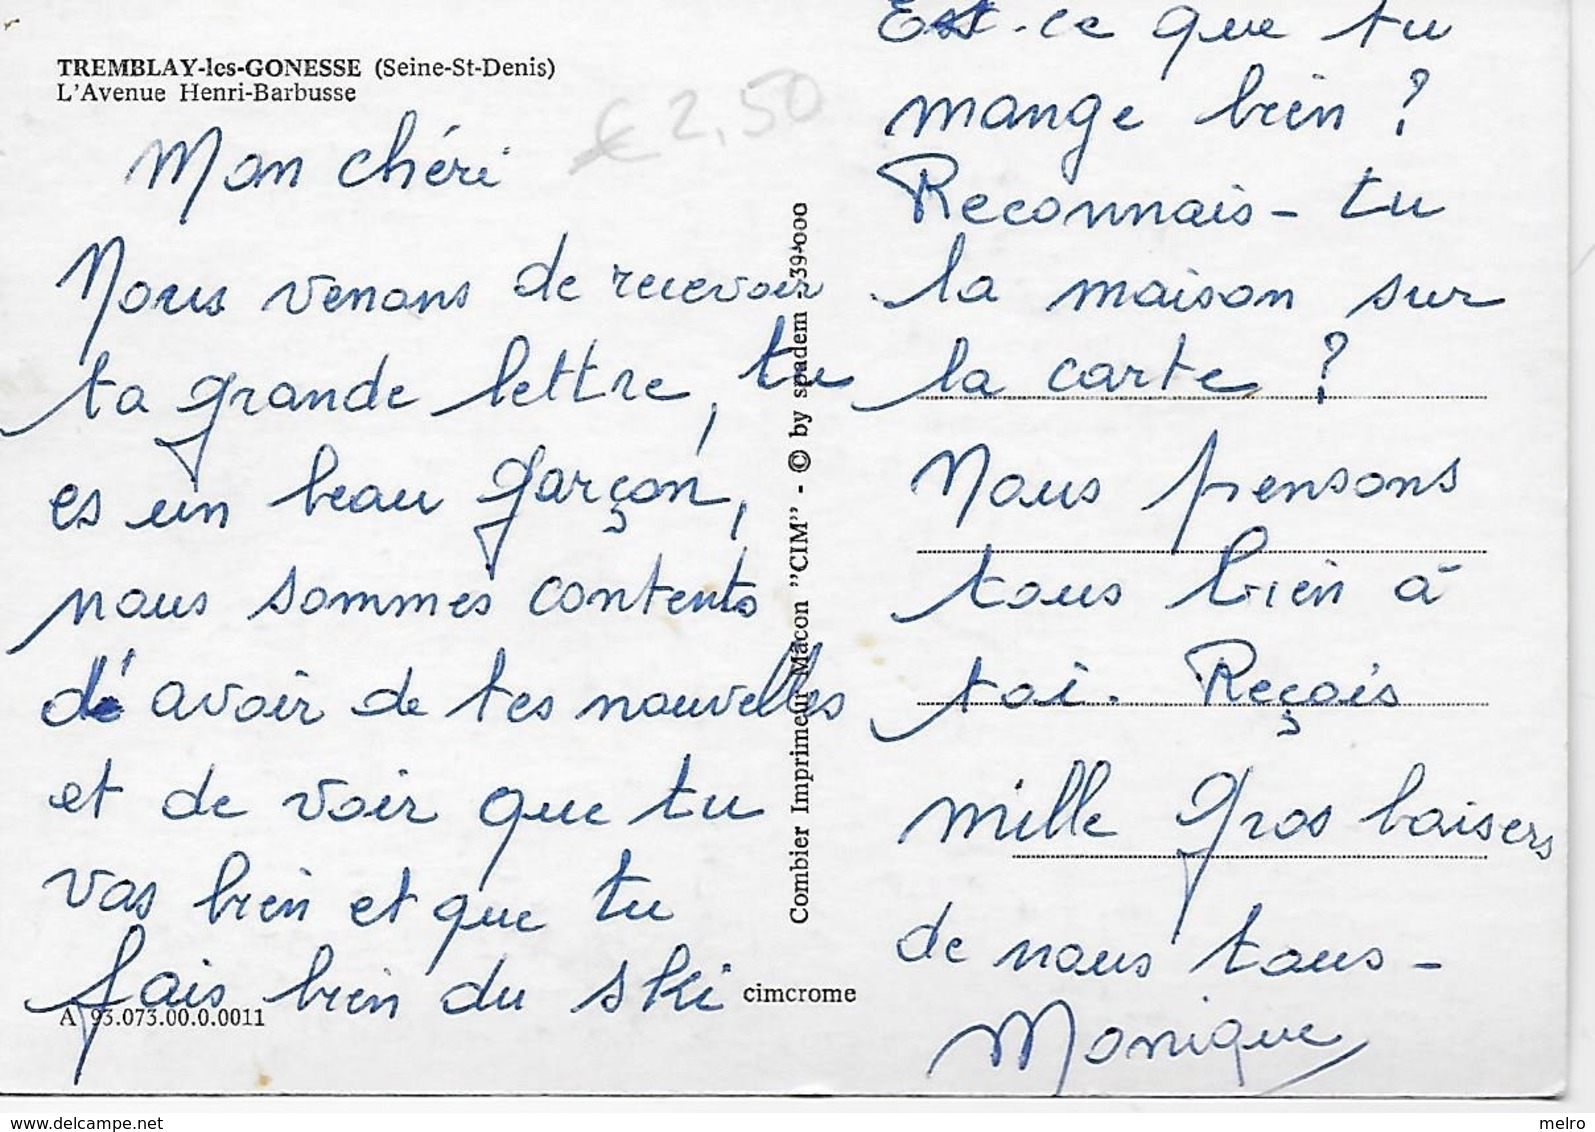 TREMBLAY-les-GONESSE (Seine-St-Denis)
L'Avenue Henri-Barbusse
€ 2,50
Mon chéri
Nous venons de recevoir
ta grande lettre, tu
es un beau garçon,
nous sommes contents
d'avoir de tes nouvelles
et de voir que tu
vas bien et que tu
fais bien du ski
A 93.073.00.0.0011
cimcrome
Combier Imprimeur Macon "CIM" - © by spadem 39.000
Est-ce que tu
mange bien ?
Reconnais-tu
la maison sur
la carte ?
Nous pensons
tous bien à
toi. Reçois
mille gros baisers
de nous tous -
Monique
delcampe.net
melro